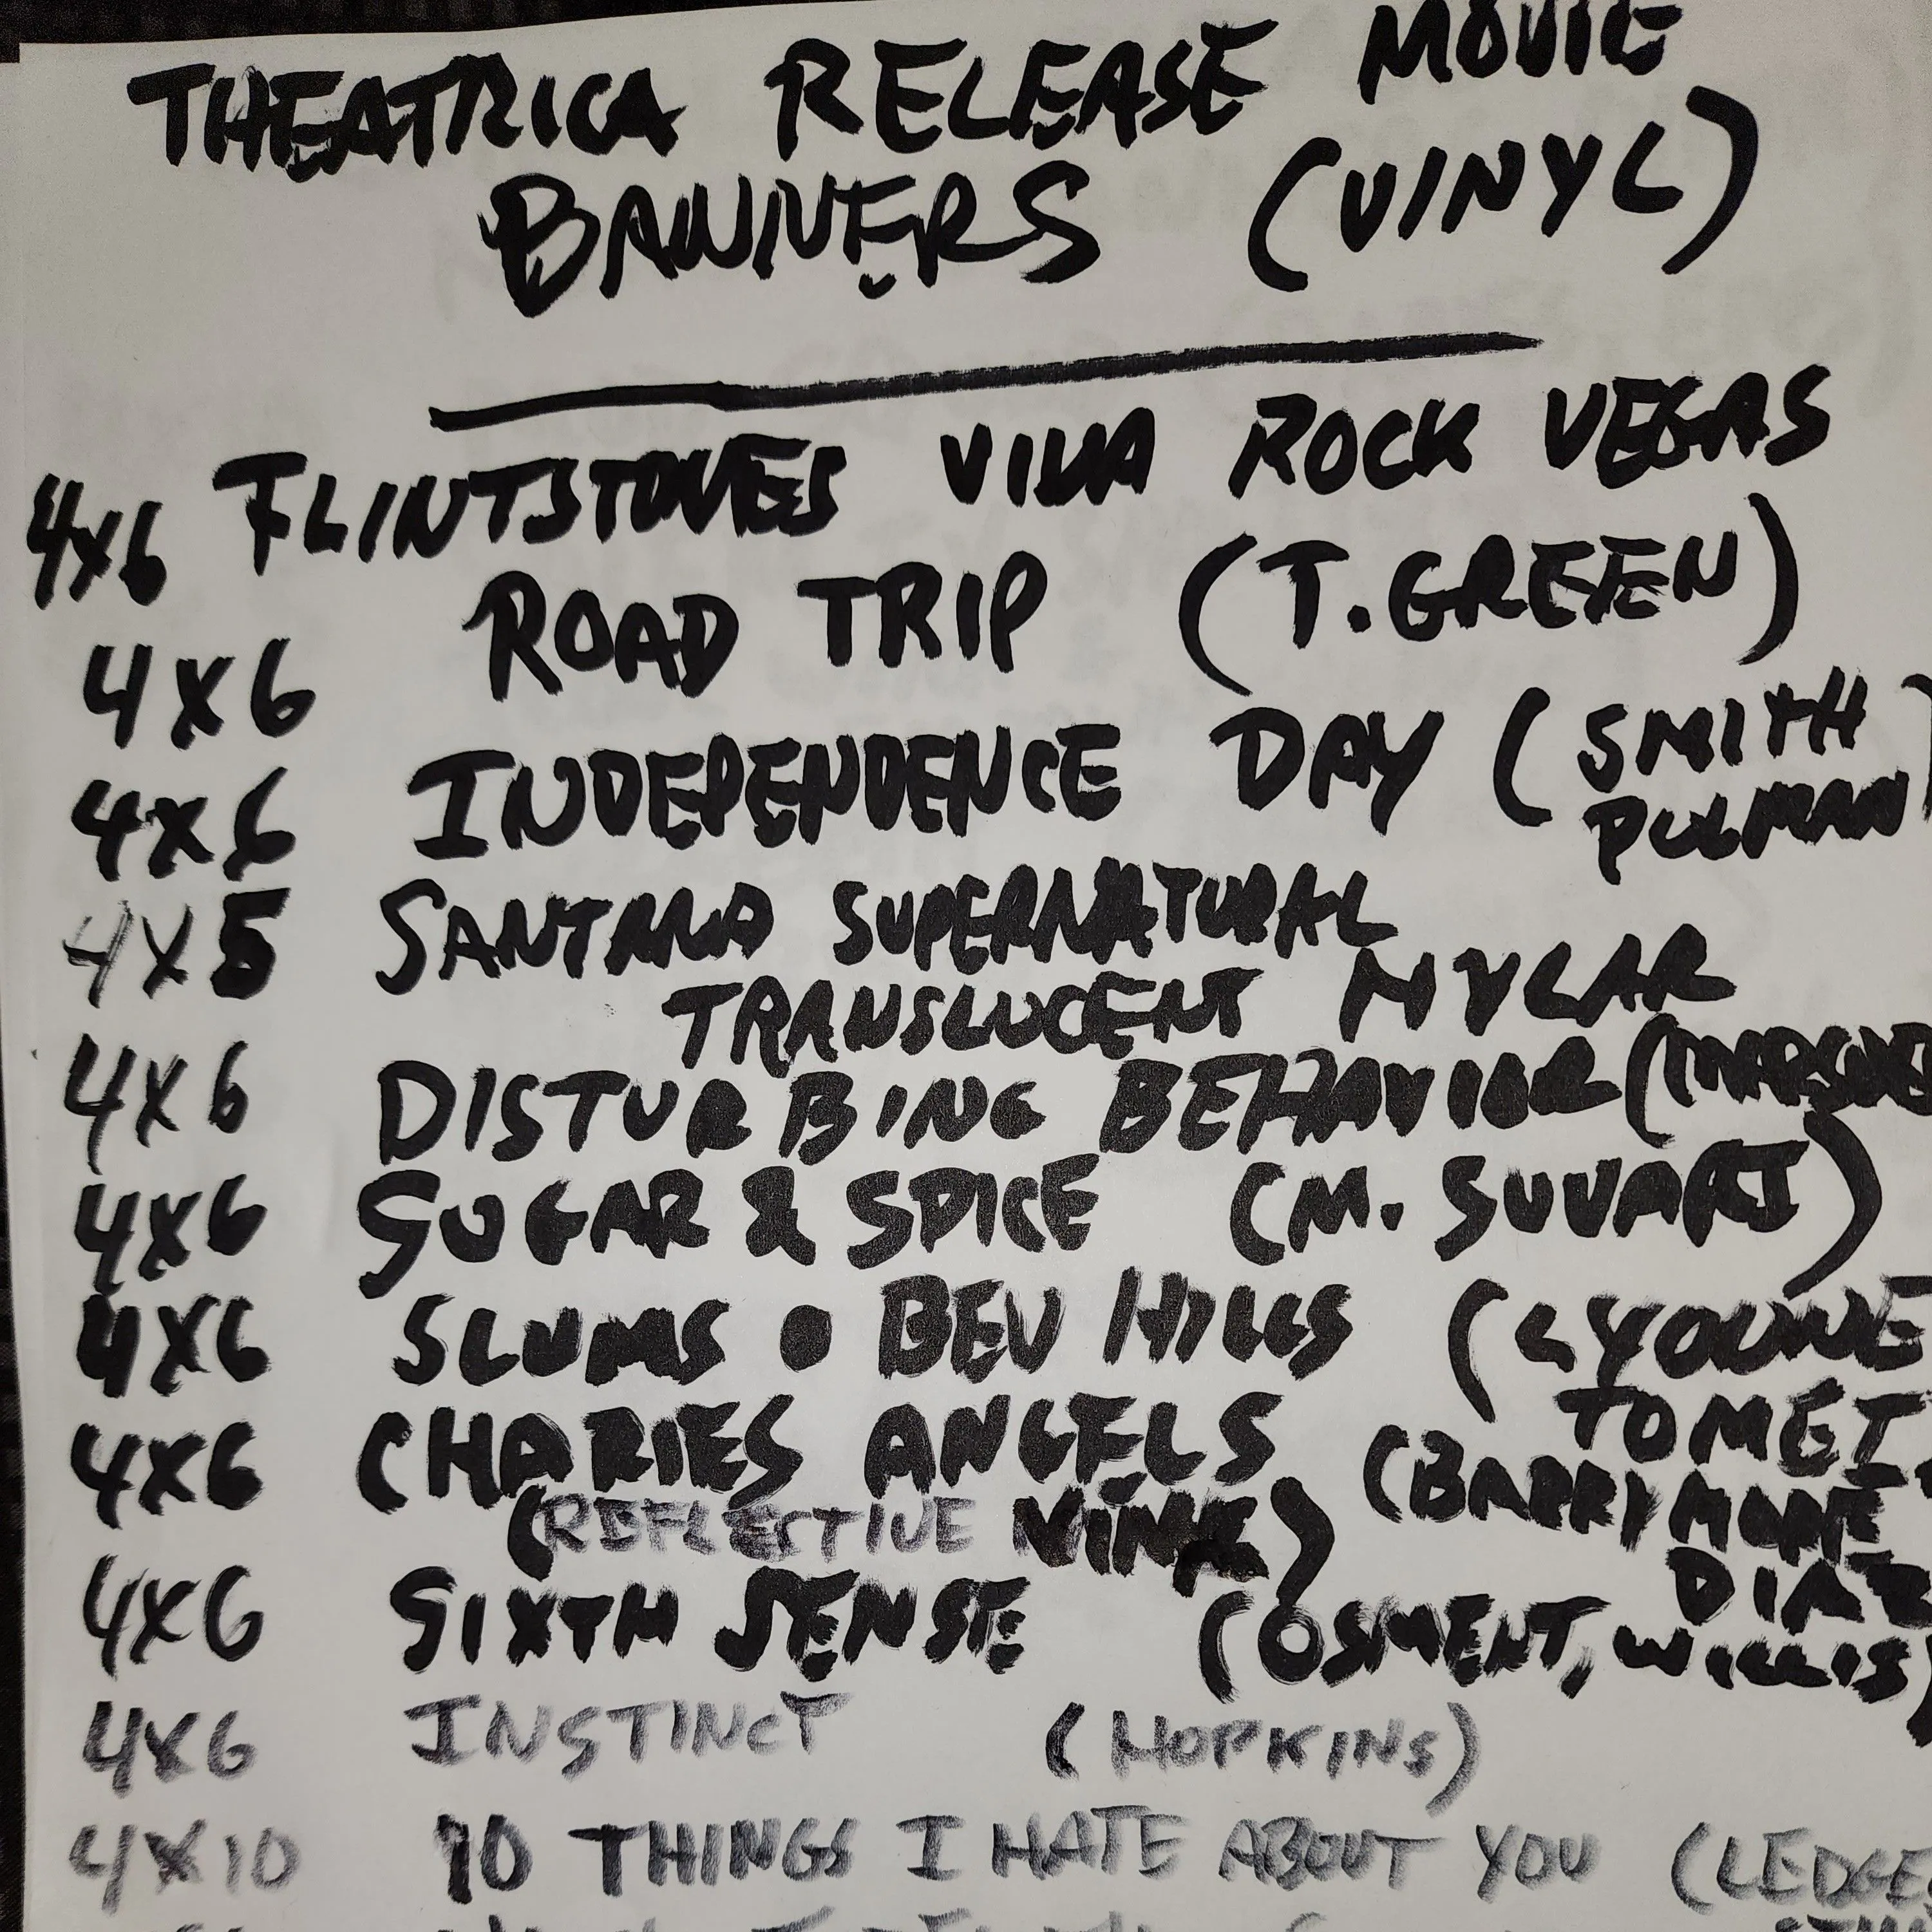 THEATRICA RELEASE MOVIE
BANNERS (VINYL)
4X6 FLINTSTONES VIVA ROCK VEGAS
4X6 ROAD TRIP (T. GREEN)
4X6 INDEPENDENCE DAY (SMITH
PULMAN)
4X5 SANTANA SUPERNATURAL
TRANSLUCENT MYLAR
4X6 DISTURBING BEHAVIOR
4X6 SUGAR & SPICE (M. SUVARI)
4X6 SLUMS O BEV HILLS (LYOUNE
TOMEI
4X6 CHARIES ANGELS (BARRYMORE
(REFLECTIVE VINYL) DIAZ
4X6 SIXTH SENSE (OSMENT, WILLIS)
4X6 INSTINCT (HOPKINS)
4X10 10 THINGS I HATE ABOUT YOU (LEDGE